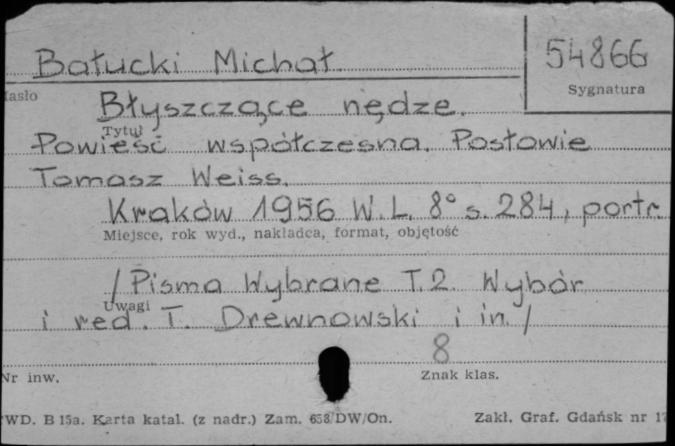 Bałucki Michał
54866
Hasło
Sygnatura
Błyszczące nędze.
Tytuł
Powieść współczesna. Posłowie
Tomasz Weiss.
Kraków 1956 W.L. 8° s. 284, portr.
Miejsce, rok wyd., nakładca, format, objętość
/Pisma Wybrane T.2. Wybór
Uwagi
i red. T. Drewnowski i in./
8
Nr inw.
Znak klas.
WD. B 15a. Karta katal. (z nadr.) Zam. 658/DW/On.
Zakł. Graf. Gdańsk nr 17